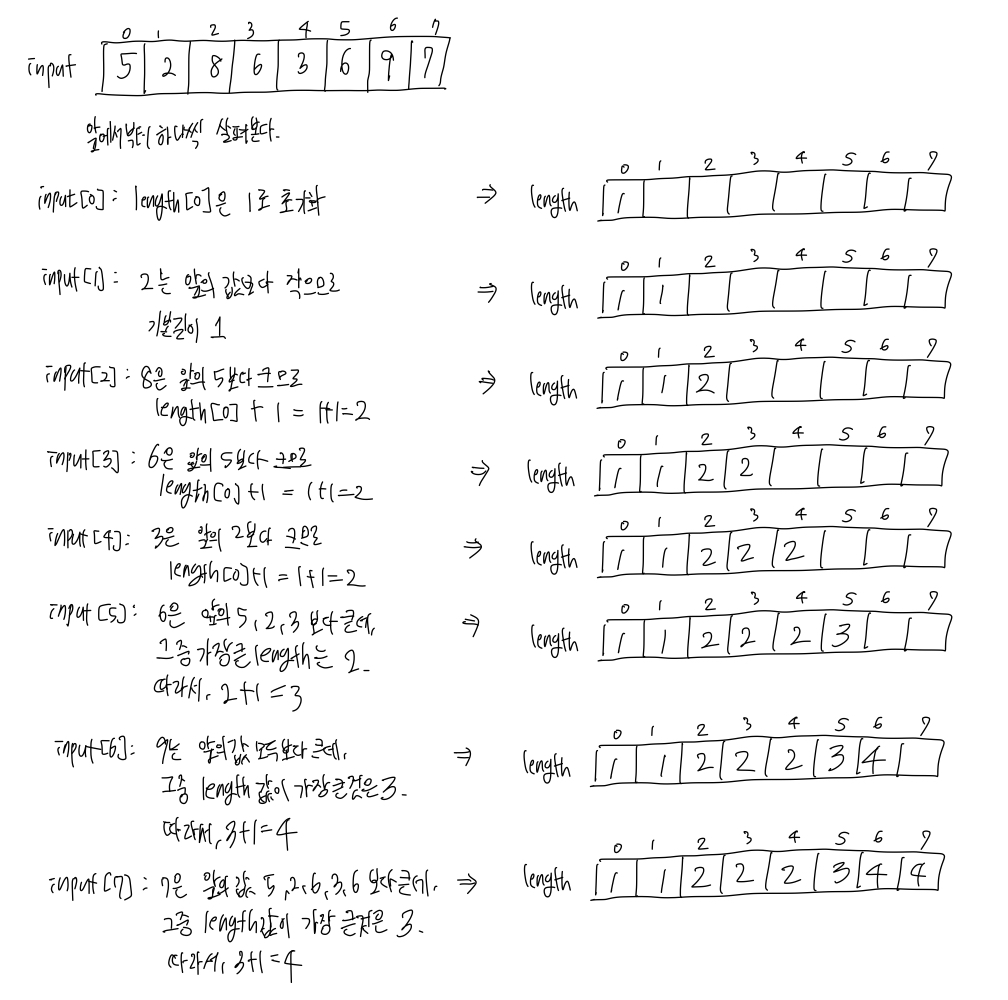 0 1 2 3 4 5 6 7
input 5 2 8 6 3 6 9 7
앞에서부터 하나씩 살펴본다.
input[0] : length[0]은 1로 초기화 ⇒
0 1 2 3 4 5 6 7
length 1
input[1] : 2는 앞의 값보다 작으므로 ⇒
기본길이 1
0 1 2 3 4 5 6 7
length 1 1
input[2] : 8은 앞의 5보다 크므로 ⇒
length[0] + 1 = 1+1=2
0 1 2 3 4 5 6 7
length 1 1 2
input[3] : 6은 앞의 5보다 크므로 ⇒
length[0]+1 = 1+1=2
0 1 2 3 4 5 6 7
length 1 1 2 2
input[4]: 3은 앞의 2보다 크므로 ⇒
length[0]+1 = 1+1=2
0 1 2 3 4 5 6 7
length 1 1 2 2 2
input[5]: 6은 앞의 5, 2, 3 보다 큰데, ⇒
그중 가장큰 length는 2.
따라서, 2+1=3
0 1 2 3 4 5 6 7
length 1 1 2 2 2 3
input[6]: 9는 앞의값 모두보다 큰데, ⇒
그중 length 값이 가장큰것은 3.
따라서, 3+1=4
0 1 2 3 4 5 6 7
length 1 1 2 2 2 3 4
input[7] : 7은 앞의 값 5, 2, 6, 3, 6 보다큰데, ⇒
그중 length값이 가장 큰것은 3.
따라서, 3+1=4
0 1 2 3 4 5 6 7
length 1 1 2 2 2 3 4 4